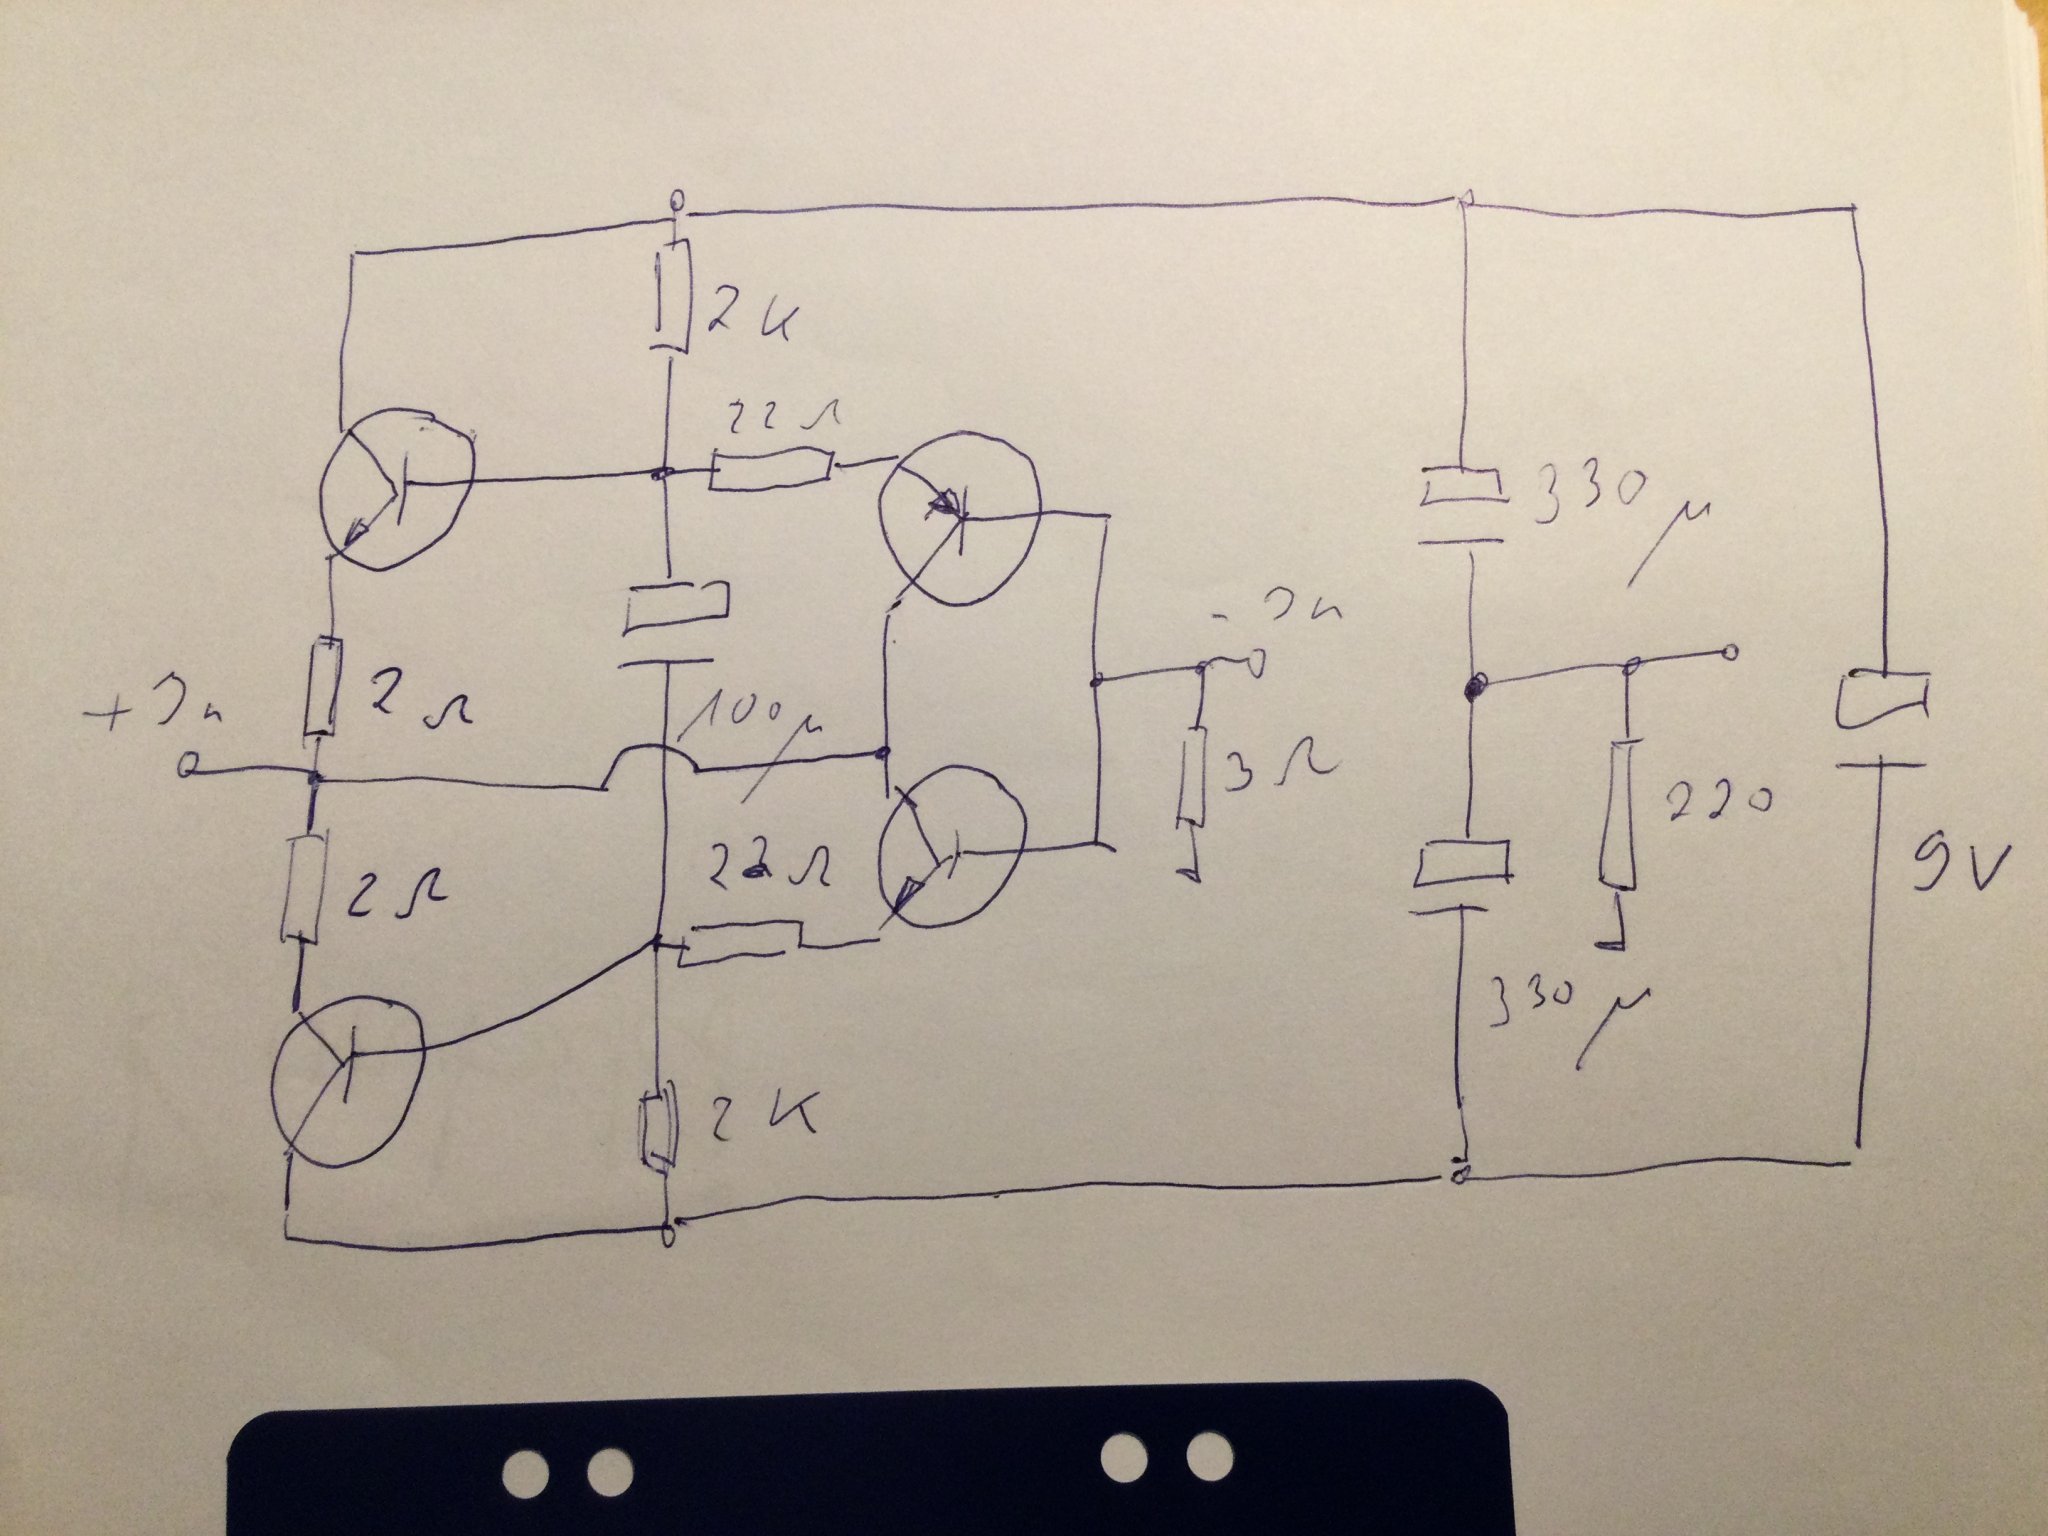 2K
22Ω
330µ
2Ω
100µ
3Ω
220
2Ω
22Ω
9V
330µ
2K